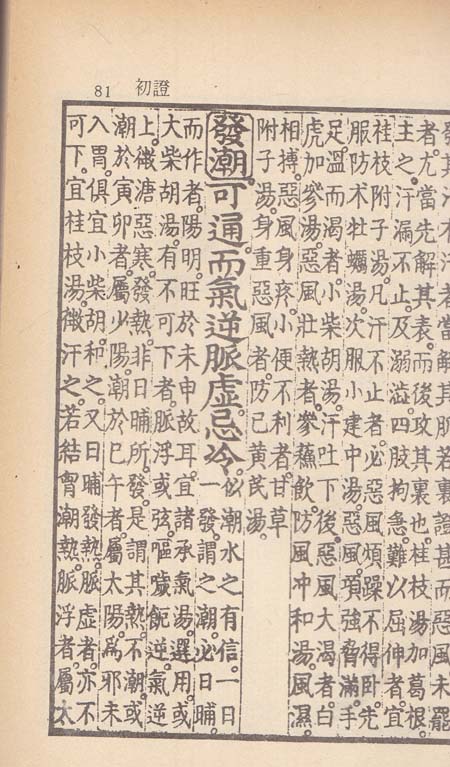 81 初證
發其汗不汗者當解其肌若裏證甚而惡風未罷
者尤當先解其表而後攻其裏也。桂枝湯加葛根
主之。汗漏不止及溺澁。四肢拘急。難以屈伸者。宜
桂枝附子湯。凡汗不止者。必惡風煩躁不得臥。先
服防朮牡蠣湯。次服小建中湯。惡風項強脅滿。手
足溫而渴者。小柴胡湯。汗吐下後。惡風大渴者。白
虎加參湯。惡風壯熱者。參蘇飲。防風冲和湯。風濕
相搏。惡風身疼。小便不利者。甘草
附子湯。身重惡風者。防己黃芪湯。
發潮。可通而氣逆脈虛忌冷。
似潮水之有信。一日
一發。謂之潮。必日晡。
而作者。陽明旺於未申故耳。宜諸承氣湯選用。或
大柴胡湯。有不可下者。脈浮或弦。嘔噦飽逆。氣逆
上。微溏惡寒。發熱非日晡所發。是謂其熱不潮。或
潮於寅卯者。屬少陽。潮於巳午者。屬太陽。為邪未
入胃。俱宜小柴胡和之。又日晡發熱。脈虛者。亦不
可下。宜桂枝湯。微汗之。若結胷潮熱。脈浮者。屬太